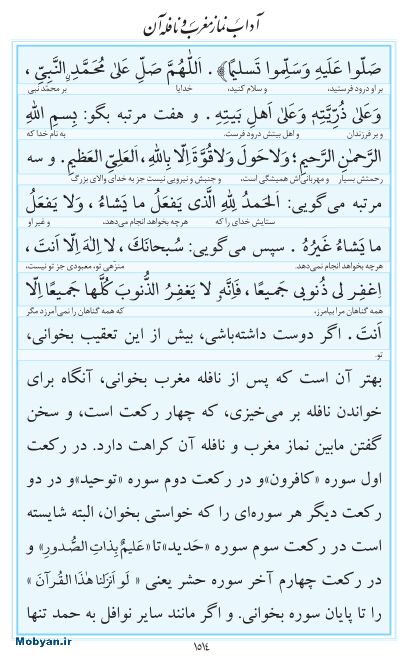 آداب نماز مغرب و نافله آن
صَلّوا عَلَیهِ وَسَلِّموا تَسلیمًا﴾. اَللّٰهُمَّ صَلِّ عَلیٰ مُحَمَّدٍ النَّبِیِّ،
بر او درود فرستید، و سلام کنید، خدایا بر محمّد نبی
وَعَلیٰ ذُرِّیَّتِهِ وَعَلیٰ اَهلِ بَیتِهِ. و هفت مرتبه بگو: بِسمِ اللهِ
و بر فرزندان و اهل بیتش درود فرست. به نام خدا که
الرَّحمنِ الرَّحیمِ؛ وَلا حَولَ وَلا قُوَّةَ اِلّا بِاللهِ، العَلِیِّ العَظیمِ. و سه
رحمتش بسیار و مهربانی‌اش همیشگی است، و جنبش و نیرویی نیست جز به خدای والای بزرگ
مرتبه می‌گویی: اَلحَمدُ لِلّهِ الَّذی یَفعَلُ ما یَشاءُ، وَلا یَفعَلُ
ستایش خدای را که هرچه بخواهد انجام می‌دهد. و غیر او
ما یَشاءُ غَیرُهُ. سپس می‌گویی: سُبحانَكَ، لا اِلهَ اِلّا اَنتَ،
هرچه بخواهد انجام نمی‌دهد. منزّهی تو، معبودی جز تو نیست،
اِغفِر لی ذُنوبی جَمیعًا، فَاِنَّهُ لا یَغفِرُ الذُّنوبَ کُلَّها جَمیعًا اِلّا
همه گناهان مرا بیامرز، که همه گناهان را نمی‌آمرزد مگر
اَنتَ. اگر دوست داشته‌باشی، بیش از این تعقیب بخوانی،
تو.
بهتر آن است که پس از نافله مغرب بخوانی، آنگاه برای
خواندن نافله بر می‌خیزی، که چهار رکعت است، و سخن
گفتن مابین نماز مغرب و نافله آن کراهت دارد. در رکعت
اول سوره «کافرون» و در رکعت دوم سوره «توحید» و در دو
رکعت دیگر هر سوره‌ای را که خواستی بخوان، البته شایسته
است در رکعت سوم سوره «حدید» تا «عَلیمٌ بِذاتِ الصُّدورِ» و
در رکعت چهارم آخر سوره حشر یعنی «لَو اَنزَلنا هٰذَا القُرآنَ»
را تا پایان سوره بخوانی. و اگر مانند سایر نوافل به حمد تنها
Mobyan.ir
۱۵۱۴